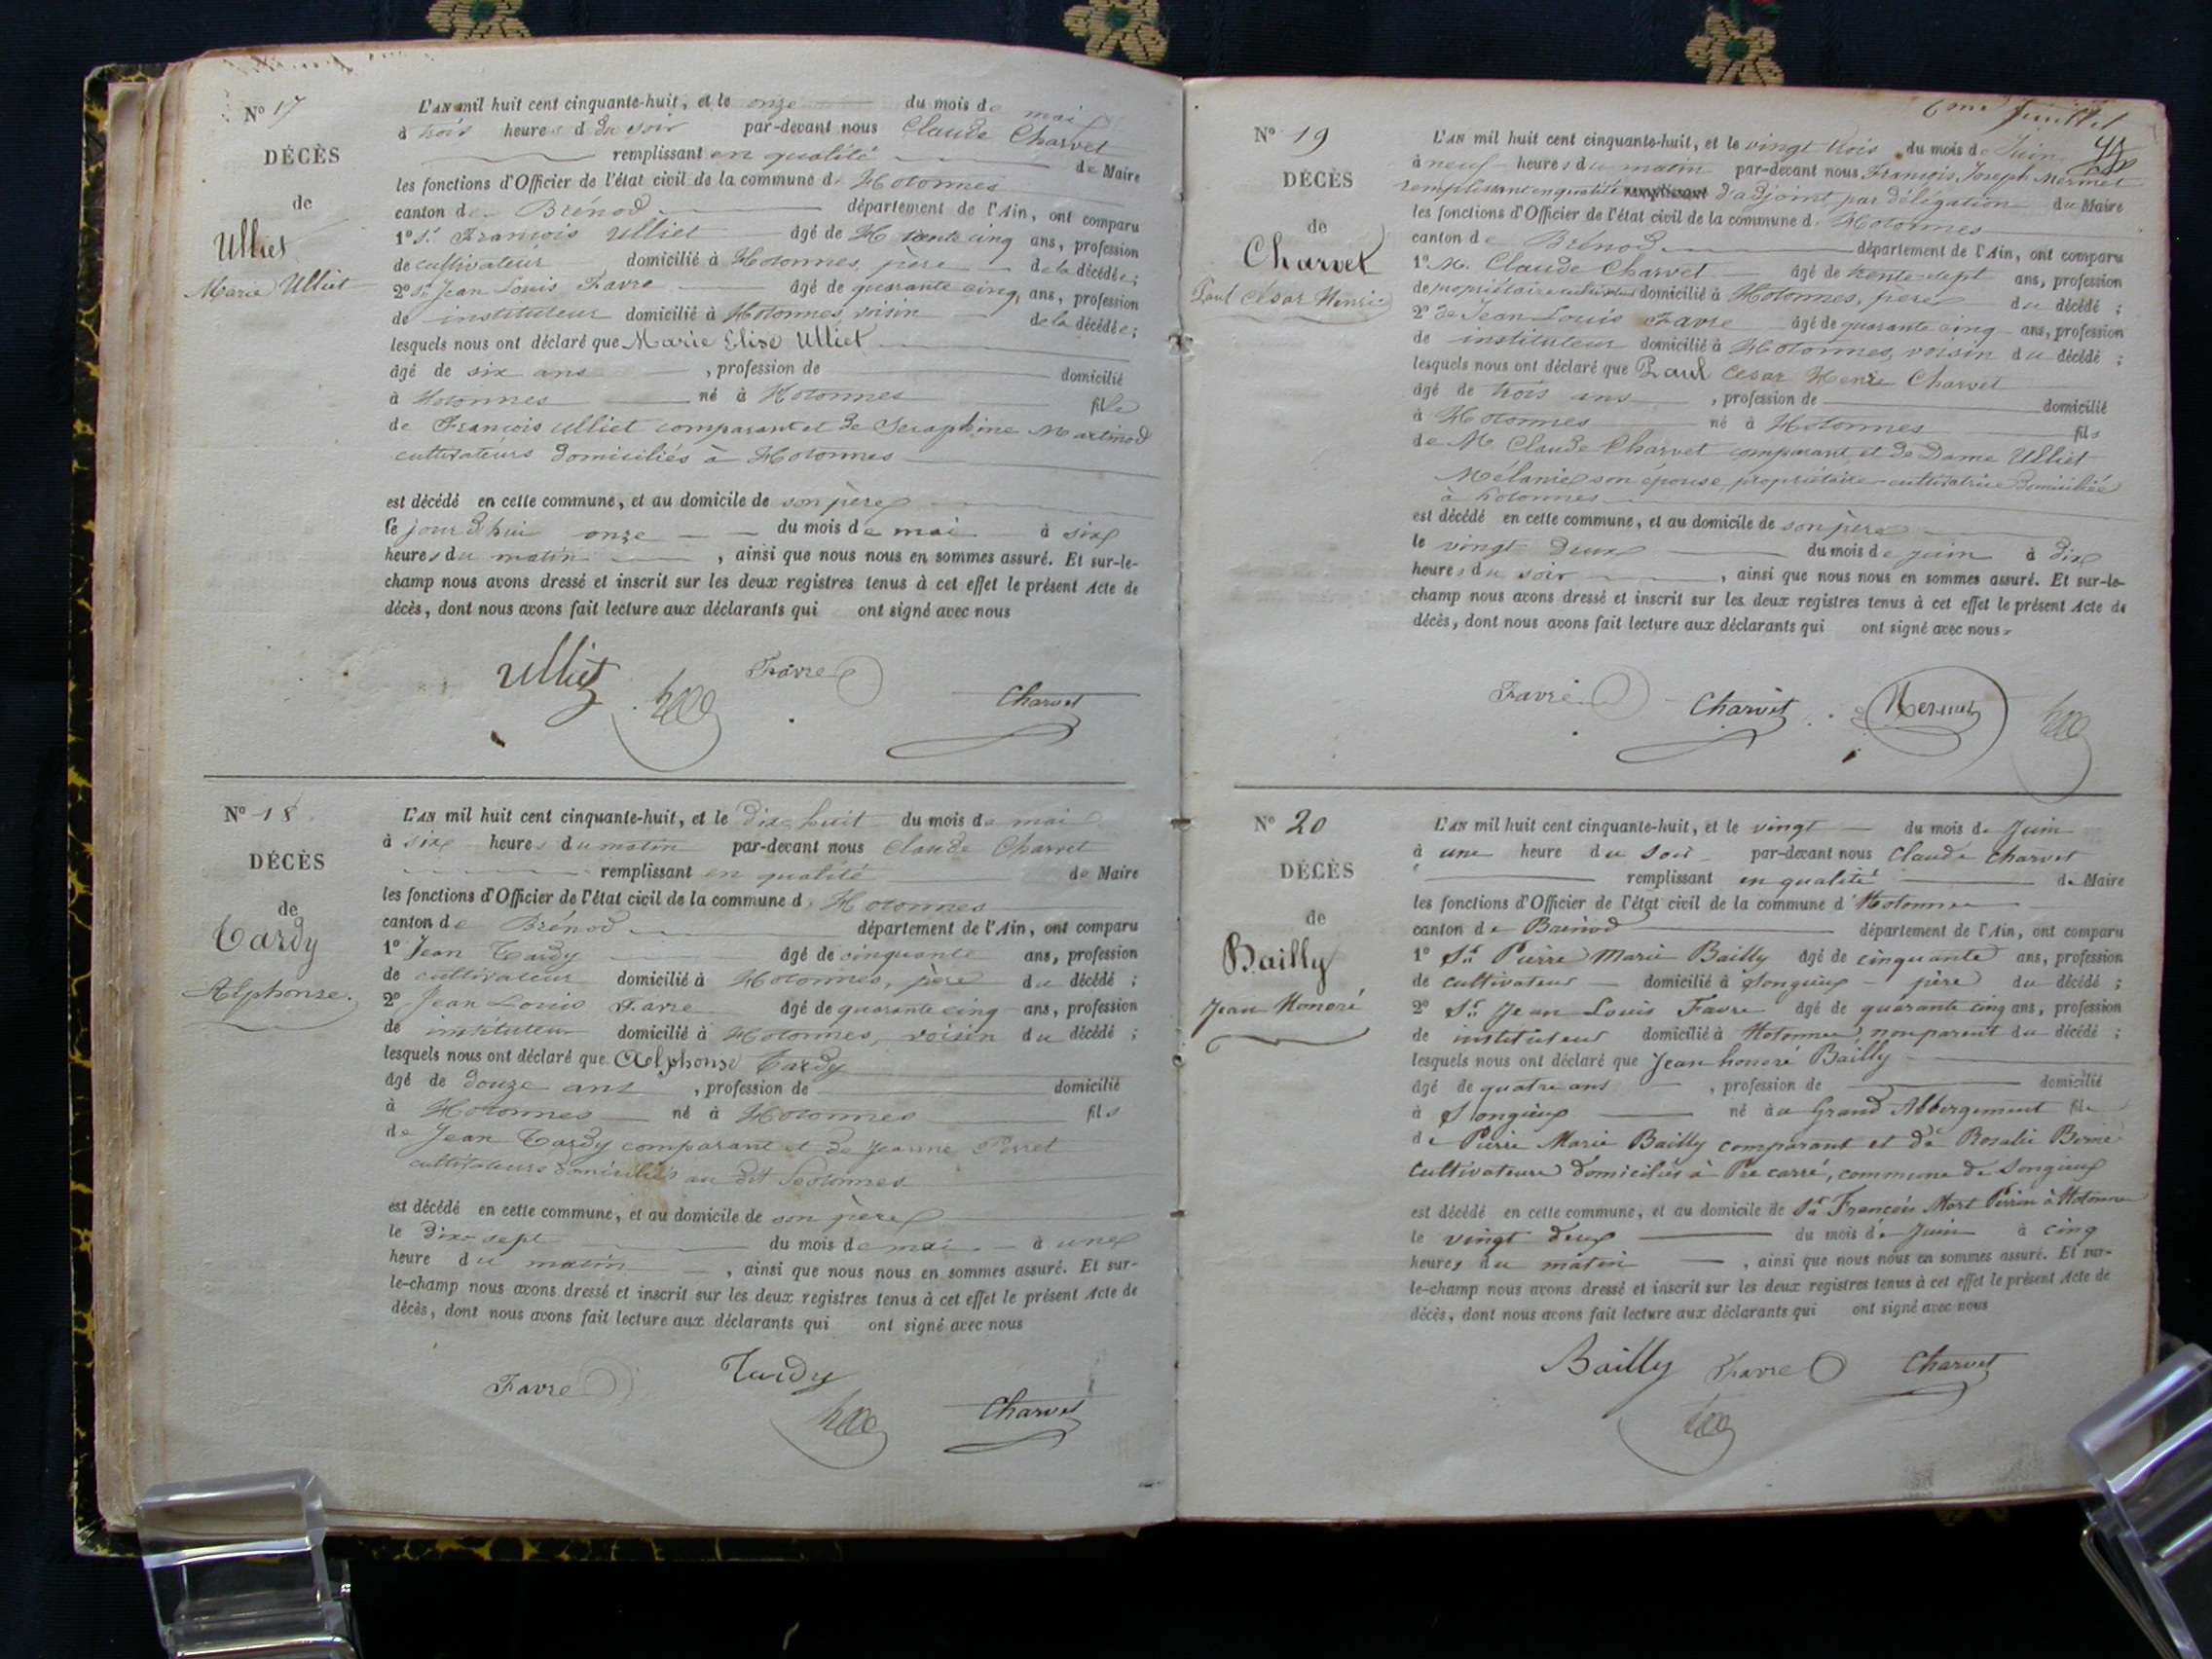 N° 17
DÉCÈS
de
Ulliet
Marie Ulliet
L'AN mil huit cent cinquante-huit, et le onze du mois de mai
à trois heures d du soir par-devant nous Claude Charvet
remplissant en qualité de Maire
les fonctions d'Officier de l'état civil de la commune d Hotonnes
canton de Brénod département de l'Ain, ont comparu
1° Sr François Ulliet âgé de trente cinq ans, profession
de cultivateur domicilié à Hotonnes, père de la décédée;
2° Sr Jean Louis Favre âgé de quarante cinq, ans, profession
de instituteur domicilié à Hotonnes, voisin de la décédée;
lesquels nous ont déclaré que Marie Elise Ulliet
âgé de six ans , profession de domicilié
à Hotonnes né à Hotonnes fille
de François Ulliet comparant et de Seraphine Martinod
cultivateurs domiciliés à Hotonnes
est décédé en cette commune, et au domicile de son père
le jour d'hui onze du mois de mai à six
heures du matin , ainsi que nous nous en sommes assuré. Et sur-le-
champ nous avons dressé et inscrit sur les deux registres tenus à cet effet le présent Acte de
décès, dont nous avons fait lecture aux déclarants qui ont signé avec nous
Ulliet Favre Charvet
N° 18
DÉCÈS
de
Tardy
Alphonse.
L'AN mil huit cent cinquante-huit, et le dix huit du mois de mai
à six heures du matin par-devant nous Claude Charvet
remplissant en qualité de Maire
les fonctions d'Officier de l'état civil de la commune d Hotonnes
canton de Brénod département de l'Ain, ont comparu
1° Jean Tardy âgé de cinquante ans, profession
de cultivateur domicilié à Hotonnes, père du décédé;
2° Jean Louis Favre âgé de quarante cinq ans, profession
de instituteur domicilié à Hotonnes, voisin du décédé;
lesquels nous ont déclaré que Alphonse Tardy
âgé de douze ans , profession de domicilié
à Hotonnes né à Hotonnes fils
de Jean Tardy comparant et de Jeanne Perret
cultivateurs domiciliés au dit hotonnes
est décédé en cette commune, et au domicile de son père
le dix-sept du mois de mai à une
heure du matin , ainsi que nous nous en sommes assuré. Et sur-
le-champ nous avons dressé et inscrit sur les deux registres tenus à cet effet le présent Acte de
décès, dont nous avons fait lecture aux déclarants qui ont signé avec nous
Favre Tardy Charvet
6me feuillet
N° 19
DÉCÈS
de
Charvet
Paul César Henri
L'AN mil huit cent cinquante-huit, et le vingt trois du mois de Juin
à neuf heures du matin par-devant nous François Joseph Mermet
remplissant en qualité remplissant d'adjoint par délégation du Maire
les fonctions d'Officier de l'état civil de la commune d Hotonnes
canton de Brénod département de l'Ain, ont comparu
1° M. Claude Charvet âgé de trente-sept ans, profession
de propriétaire domicilié à Hotonnes, père du décédé;
2° de Jean Louis Favre âgé de quarante cinq ans, profession
de instituteur domicilié à Hotonnes, voisin du décédé;
lesquels nous ont déclaré que Paul César Henri Charvet
âgé de trois ans , profession de domicilié
à Hotonnes né à Hotonnes fils
de M. Claude Charvet comparant et de Dame Ulliet
Mélanie son épouse, propriétaire-cultivatrice domiciliée
à hotonnes
est décédé en cette commune, et au domicile de son père
le vingt deux du mois de juin à dix
heures du soir , ainsi que nous nous en sommes assuré. Et sur-le-
champ nous avons dressé et inscrit sur les deux registres tenus à cet effet le présent Acte de
décès, dont nous avons fait lecture aux déclarants qui ont signé avec nous.
Favre Charvet Mermet
N° 20
DÉCÈS
de
Bailly
Jean Honoré
L'AN mil huit cent cinquante-huit, et le vingt du mois de Juin
à une heure du soir par-devant nous Claude Charvet
remplissant en qualité de Maire
les fonctions d'Officier de l'état civil de la commune d'Hotonnes
canton de Brénod département de l'Ain, ont comparu
1° Sr Pierre Marie Bailly âgé de cinquante ans, profession
de cultivateur domicilié à Songieux père du décédé;
2° Sr Jean Louis Favre âgé de quarante cinq ans, profession
de instituteur domicilié à Hotonnes non parent du décédé;
lesquels nous ont déclaré que Jean honoré Bailly
âgé de quatre ans , profession de domicilié
à Songieux né au Grand Abbergement fils
de Pierre Marie Bailly comparant et de Rosalie
cultivateurs domiciliés à Pre carré, commune de Songieux
est décédé en cette commune, et au domicile de Sr François Mort Perrin à Hotonnes
le vingt deux du mois de Juin à cinq
heures du matin , ainsi que nous nous en sommes assuré. Et sur-
le-champ nous avons dressé et inscrit sur les deux registres tenus à cet effet le présent Acte de
décès, dont nous avons fait lecture aux déclarants qui ont signé avec nous
Bailly Favre Charvet